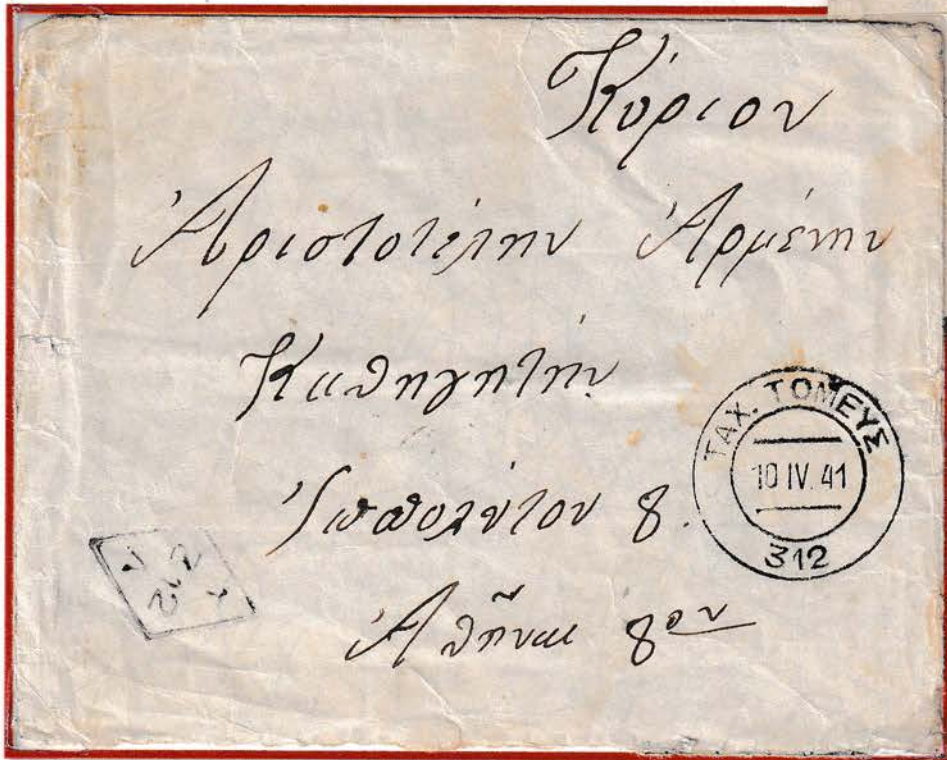 Κύριον
Ἀριστοτέλην Ἀρμένην
Καθηγητήν
Ἱππολύτου 8.
Ἀθῆναι 8ον
ΤΑΧ. ΤΟΜΕΥΣ
10 IV. 41
312